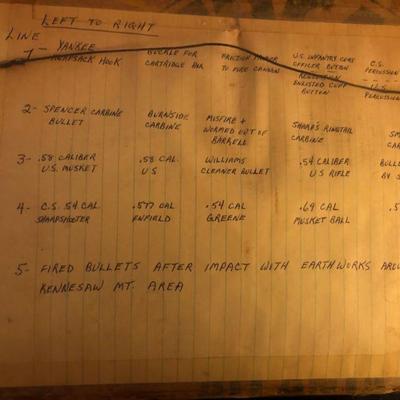 LEFT TO RIGHT
LINE
1- YANKEE KNAPSACK HOOK BUCKLE FOR CARTRIDGE BOX FRICTION PRIMER TO FIRE CANNON U.S. INFANTRY COAT OFFICER BUTTON ENLISTED CUFF BUTTON C.S. PERCUSSION U.S. PERCUSSION
2- SPENCER CARBINE BULLET BURNSIDE CARBINE MISFIRE + WORMED OUT OF BARRELL SHARP'S RINGTAIL CARBINE
3- .58 CALIBER U.S. MUSKET .58 CAL. U.S WILLIAMS CLEANER BULLET .54 CALIBER U.S RIFLE
4- C.S. .54 CAL SHARPSHOOTER .577 CAL ENFIELD .54 CAL GREENE .69 CAL MUSKET BALL
5- FIRED BULLETS AFTER IMPACT WITH EARTHWORKS
KENNESAW MT. AREA